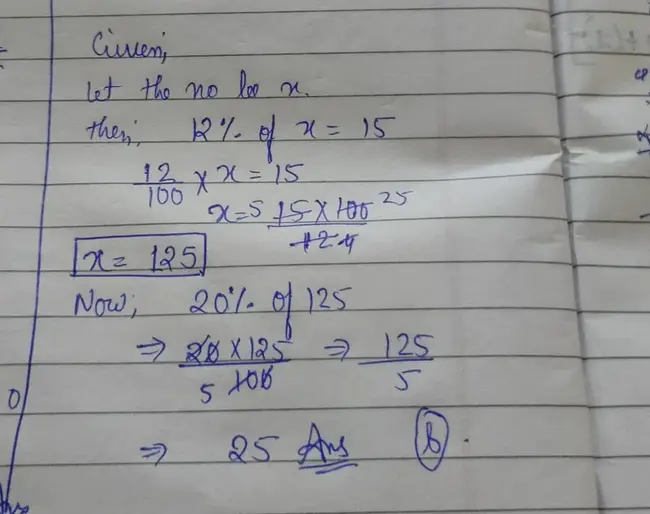 Given,
Let the no be x.
then; 12% of x = 15
12/100 × x = 15
x = 5 15 × 100 25 / 12 4
x = 125
Now; 20% of 125
⇒ 20 × 125 / 5 100 ⇒ 125 / 5
⇒ 25 Ans (b).